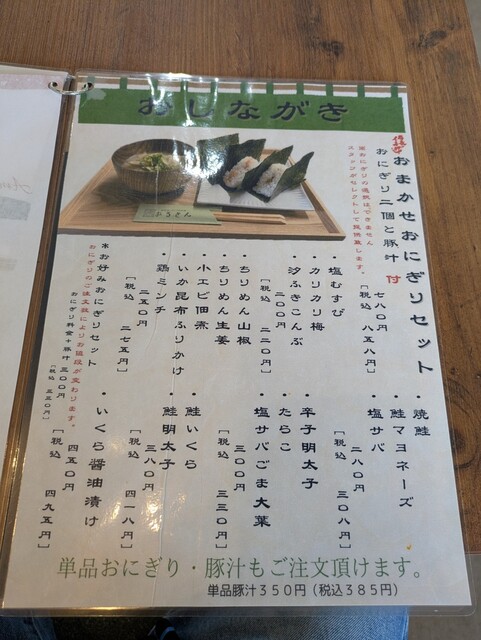 おしながき
おまかせおにぎりセット
おにぎり二個と豚汁 付
※おにぎりの選択はできません
スタッフがセレクトして提供致します。
七八〇円
[税込 八五八円]
・塩むすび
・カリカリ梅
・汐ふきこんぶ
二〇〇円
[税込 二二〇円]
・ちりめん山椒
・ちりめん生姜
・小エビ佃煮
・いか昆布ふりかけ
・鶏ミンチ
二五〇円
[税込 二七五円]
・焼鮭
・鮭マヨネーズ
・塩サバ
二八〇円
[税込 三〇八円]
・辛子明太子
・たらこ
・塩サバごま大葉
三〇〇円
[税込 三三〇円]
・鮭いくら
・鮭明太子
三八〇円
[税込 四一八円]
・いくら醤油漬け
四五〇円
[税込 四九五円]
＊お好みおにぎりセット
おにぎりのご注文数によりお値段が変わります。
おにぎり料金＋豚汁 三〇〇円
[税込 三三〇円]
単品おにぎり・豚汁もご注文頂けます。
単品豚汁３５０円（税込３８５円）